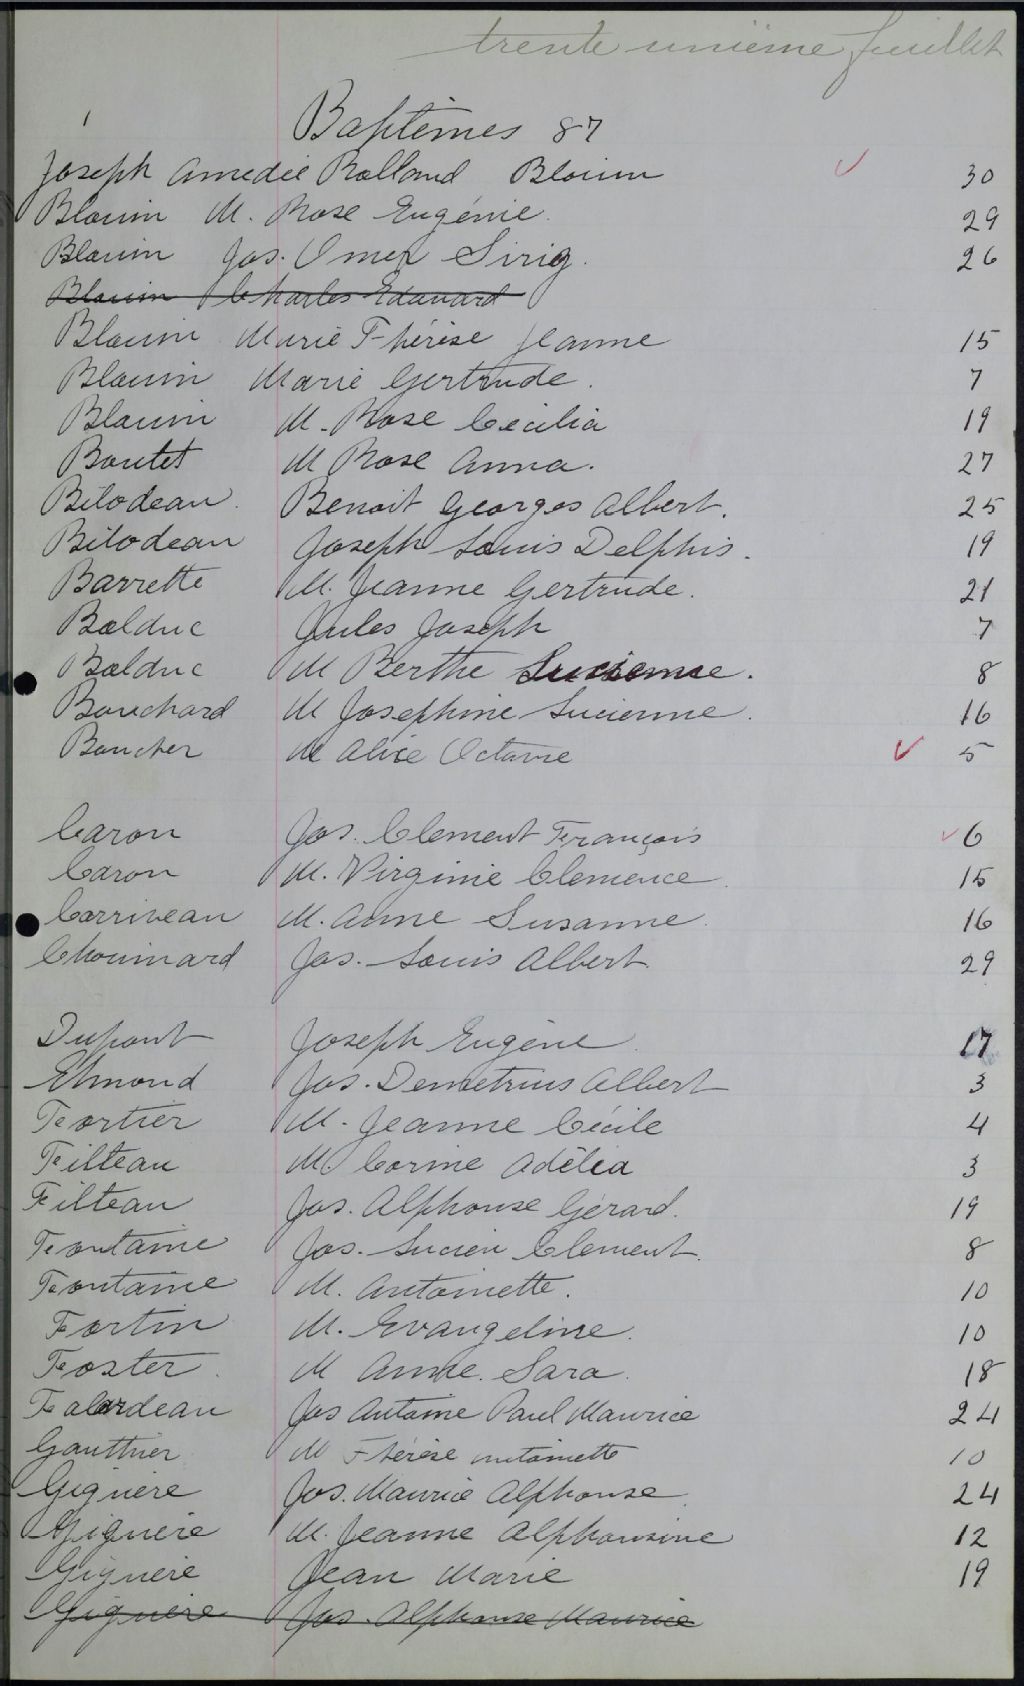 trente unième feuillet
1
Baptêmes 87
Joseph Amedée Rolland Blouin 30
Blouin M. Rose Eugénie. 29
Blouin Jos. Omer 26
Blouin Charles Edouard
Blouin Marie Thérèse Jeanne 15
Blouin Marie Gertrude. 7
Blouin M. Rose Cecilia 19
Boutet M Rose Anna. 27
Bilodeau Benoit Georges Albert. 25
Bilodeau Joseph Louis Delphis. 19
Barrette M. Jeanne Gertrude. 21
Bolduc Jules Joseph 7
Bolduc M Berthe Lucienne. 8
Bouchard M Josephine Lucienne. 16
Boucher M Alice Octavie 5
Caron Jos. Clement François 6
Caron M. Virginie Clemence 15
Corriveau M. Anne Susanne. 16
Chouinard Jos. Louis Albert. 29
Dupont Joseph Eugène 17
Emond Jos. Demetrius Albert 3
Fortier M. Jeanne Cécile 4
Filteau M. Corine Adélia 3
Filteau Jos. Alphonse Gérard. 19
Fontaine Jos. Lucien Clement. 8
Fontaine M. Antoinette. 10
Fortin M. Evangeline. 10
Foster M Annie. Sara. 18
Falardeau Jos Antoine Paul Maurice 24
Gauthier M Thérèse Antoinette 10
Giguère Jos. Maurice Alphonse 24
Giguère M. Jeanne Alphonsine 12
Giguère Jean Marie 19
Giguère Jos. Alphonse Maurice